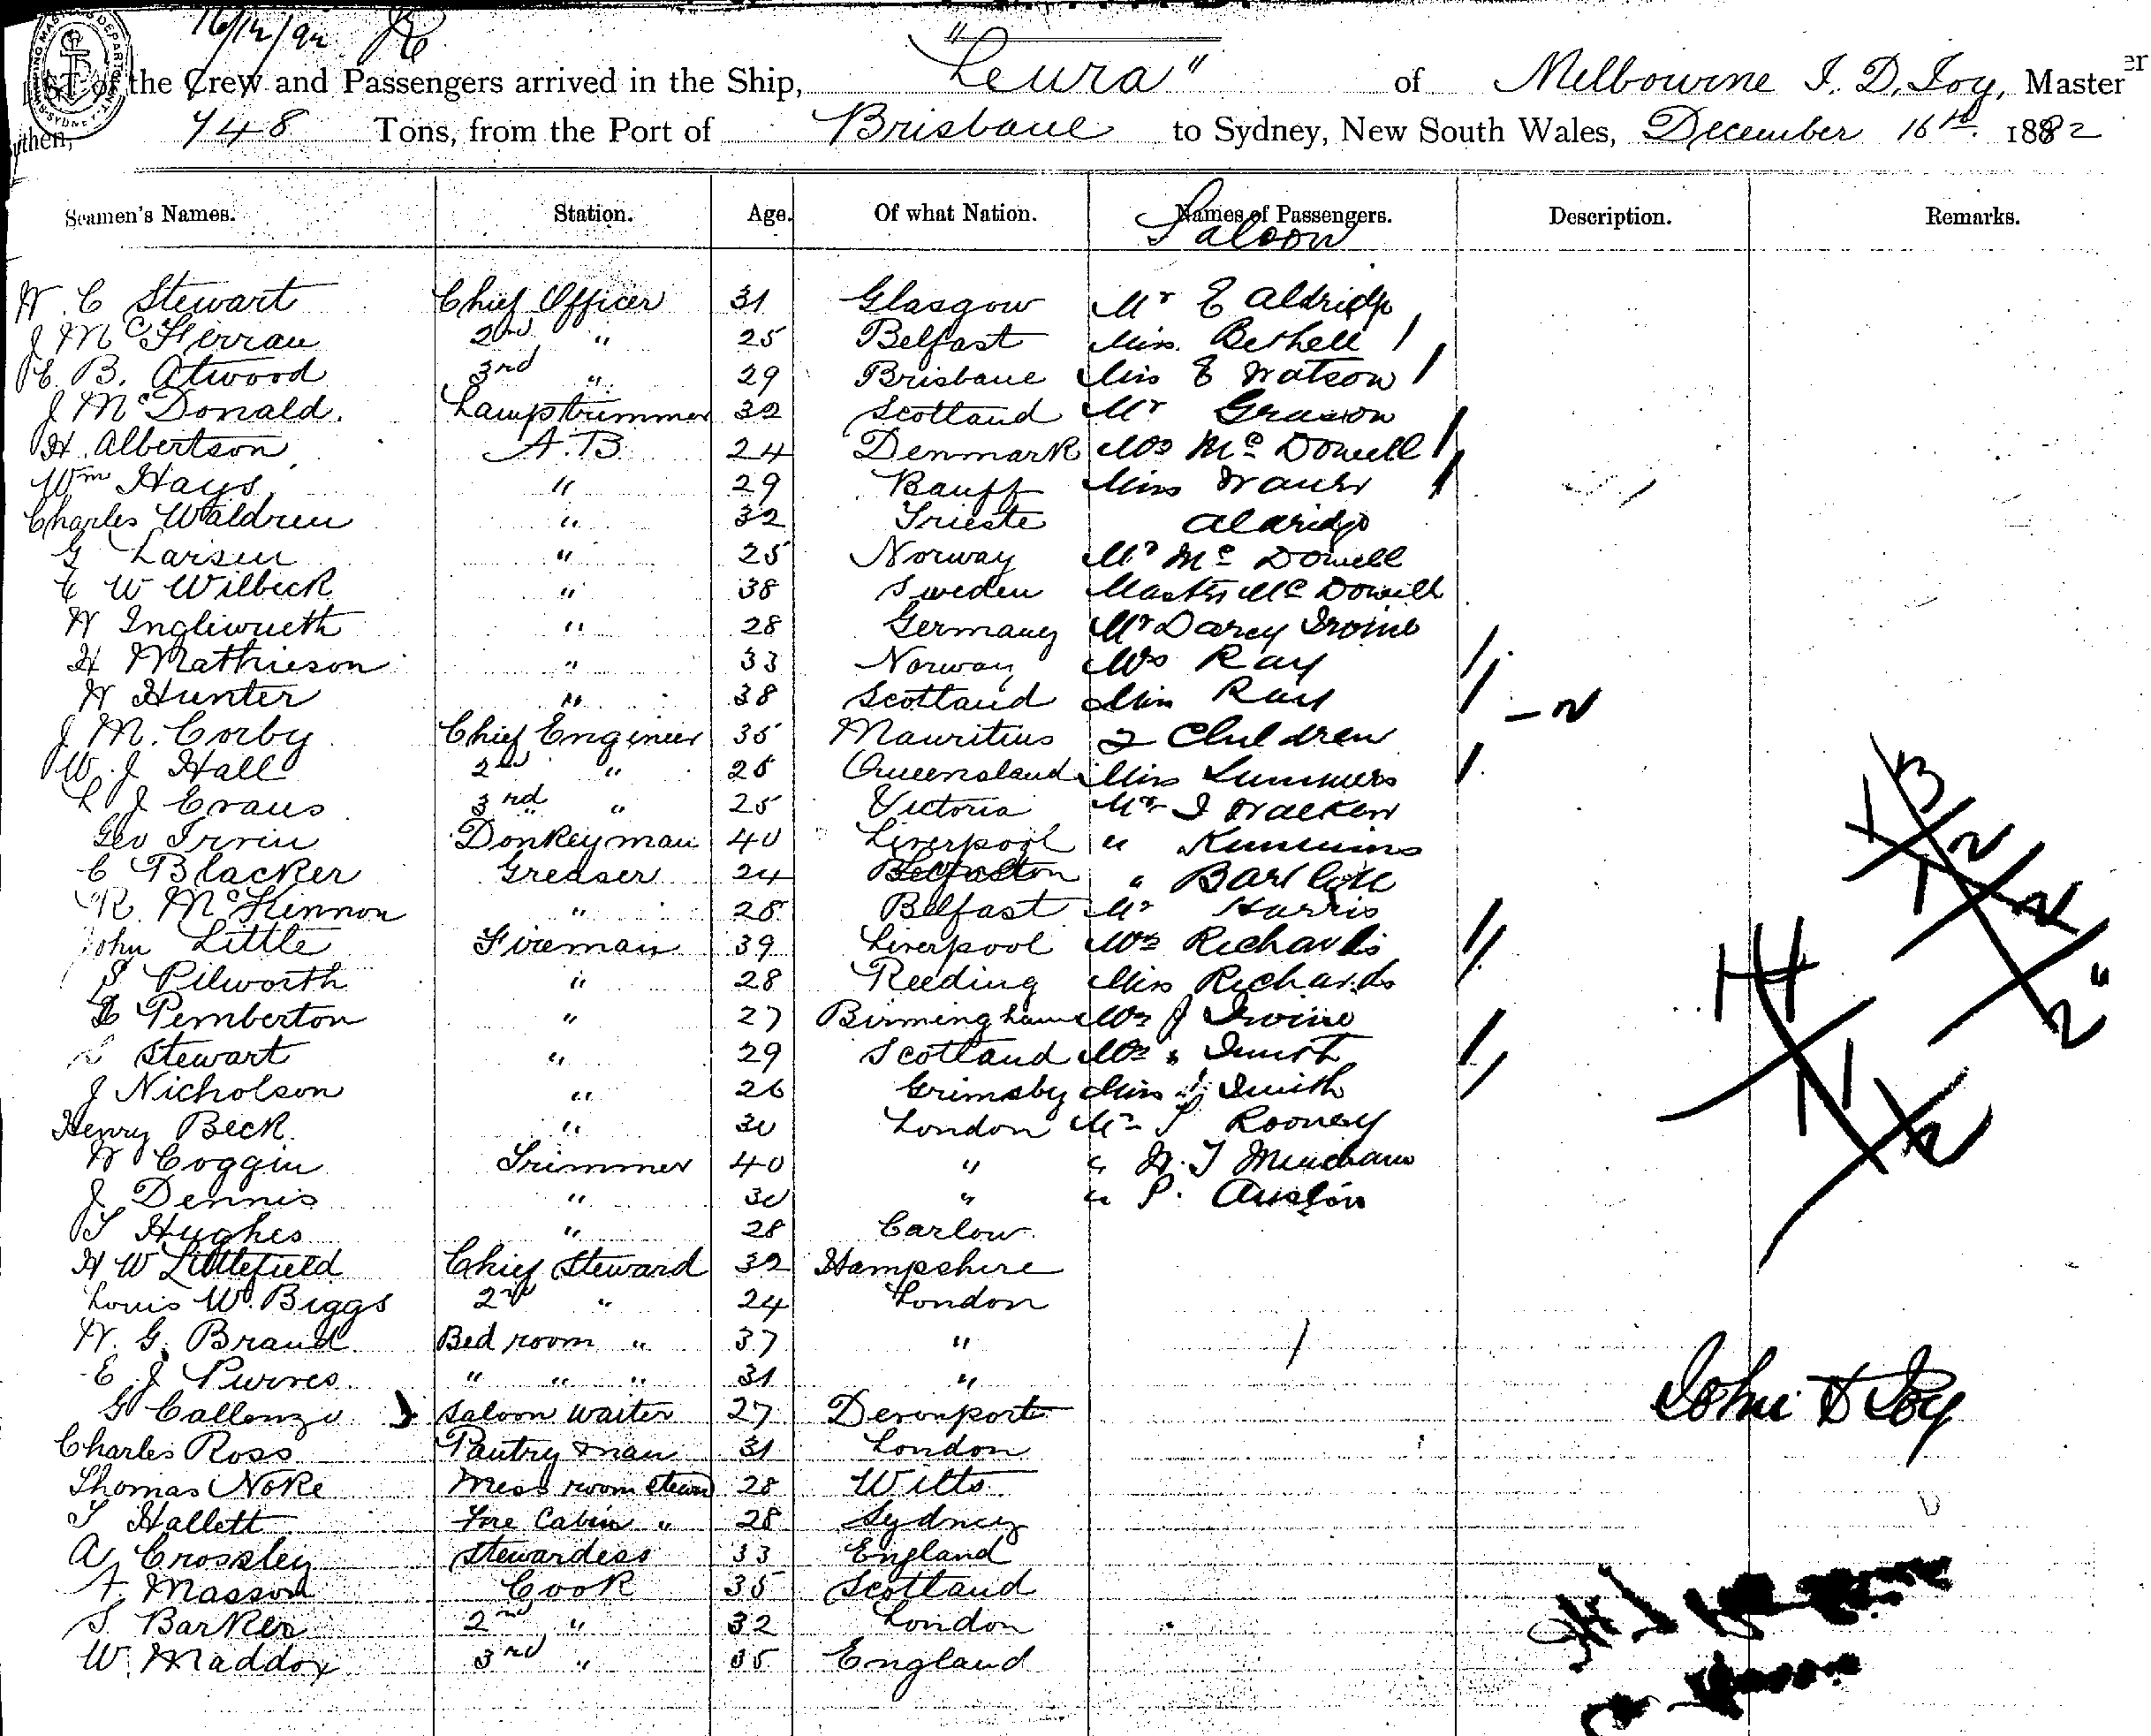 16/12/92
"Leura"
LIST of the Crew and Passengers arrived in the Ship, of Melbourne J. D. Joy, Master
748 Tons, from the Port of Brisbane to Sydney, New South Wales, December 16th 1882
Seamen's Names. Station. Age. Of what Nation. Names of Passengers. Description. Remarks.
Saloon
W. C Stewart Chief Officer 31 Glasgow Mr E Aldridge
J McFerran 2nd " 25 Belfast Miss Bethell /
E. B. Atwood 3rd " 29 Brisbane Miss E Watson /
J McDonald. Lamptrimmer 32 Scotland Mr
H. Albertson A.B. 24 Denmark Mrs McDowell /
Wm Hays " 29 Banff Miss /
Charles Waldren " 32 Trieste Aldridge
G Larsen " 25 Norway Mr McDowell
W Wilbeck " 38 Sweden Master McDowell
W " 28 Germany Mr Darcy Irvine
H Mathieson " 33 Norway Mrs Ray /
W Hunter " 38 Scotland Miss Ray /
J M. Corby Chief Engineer 35 Mauritius 2 Children - 2
W. J Hall 2nd " 28 Queensland Miss Summers /
L J Evans 3rd " 25 Victoria Mr J Walker
Geo Irvin Donkeyman 40 Liverpool " Kummins
C Blacker Greaser 24 "
R. McKennon " 28 Belfast Mr Harris
John Little Fireman 39 Liverpool Mrs Richards /
S Pilworth " 28 Reeding Miss Richards /
Pemberton " 27 Birmingham J Irvine
Stewart " 29 Scotland Mrs " Smith /
J Nicholson " 26 Grimsby Miss " Smith /
Henry Beck " 30 London Mr Rooney
W Coggin Trimmer 40 " "
J Dennis " 30 " " P. Austin
T Hughes " 28 Carlow
H W Littlefield Chief Steward 32 Hampshire
Louis W. Biggs 2nd " 24 London
W. G. Brand Bed room " 37 "
E. J Purves " " " 31 "
G Saloon Waiter 27 Devonport
Charles Ross Pantry man 31 London
Thomas Noke Mess room Stewd 28 Wilts
T Hallett Fore Cabin " 28 Sydney
A. Crossley Stewardess 33 England
Masson Cook 35 Scotland
S. Barker 2nd " 32 London
W. Maddox 3rd " 35 England
John D Joy